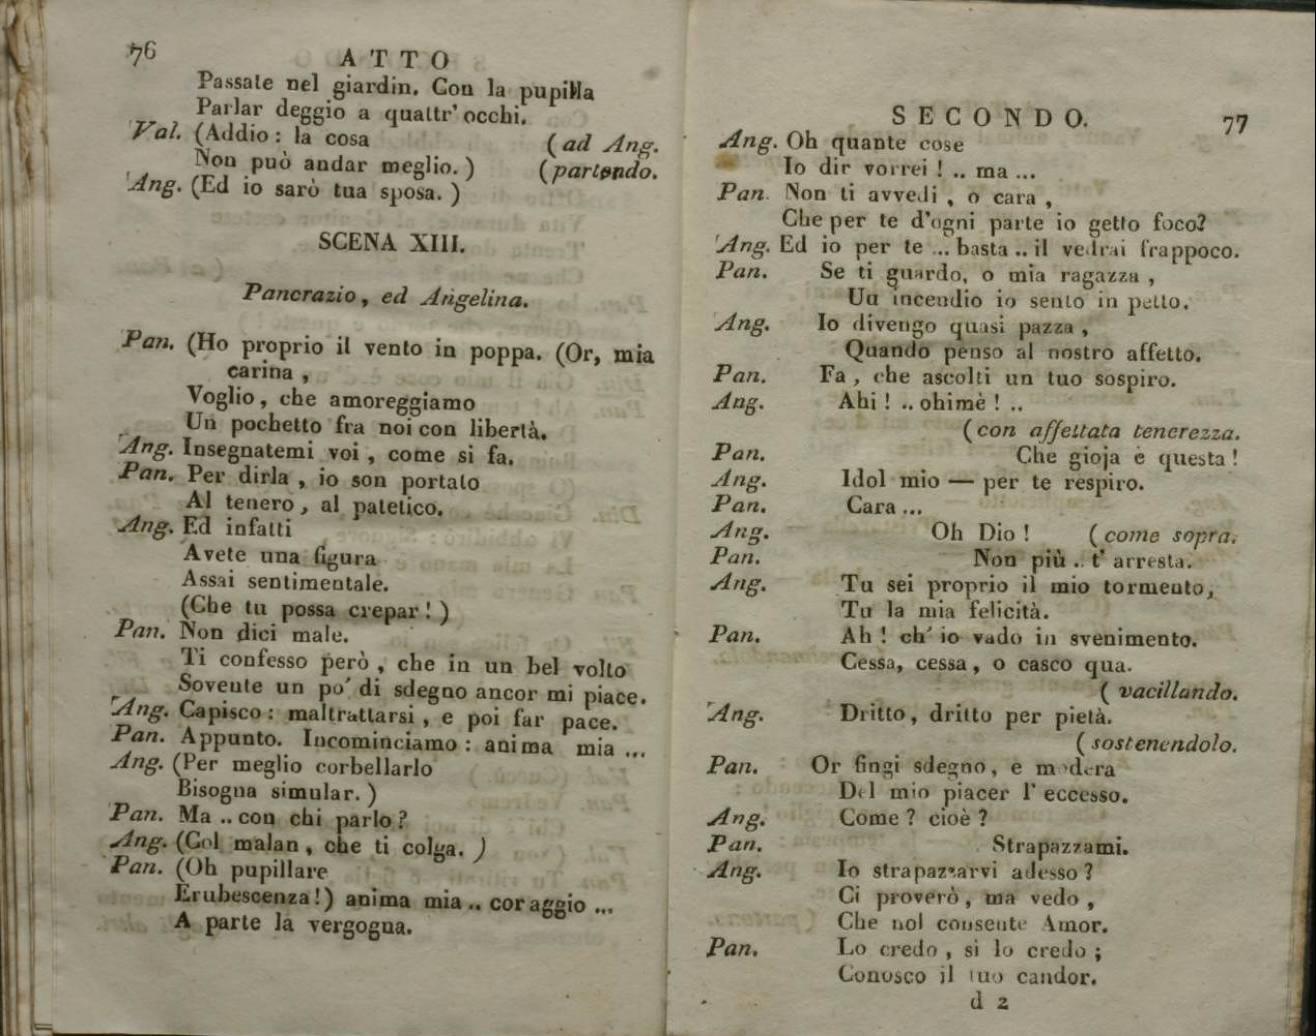 76
ATTO
Passate nel giardin. Con la pupilla
Parlar deggio a quattr' occhi.
Val. (Addio: la cosa (ad Ang.
Non può andar meglio.) (partendo.
Ang. (Ed io sarò tua sposa.)
SCENA XIII.
Pancrazio, ed Angelina.
Pan. (Ho proprio il vento in poppa. (Or, mia
carina,
Voglio, che amoreggiamo
Un pochetto fra noi con libertà.
Ang. Insegnatemi voi, come si fa.
Pan. Per dirla, io son portato
Al tenero, al patetico.
Ang. Ed infatti
Avete una figura
Assai sentimentale.
(Che tu possa crepar!)
Pan. Non dici male.
Ti confesso però, che in un bel volto
Sovente un po' di sdegno ancor mi piace.
Ang. Capisco: maltrattarsi, e poi far pace.
Pan. Appunto. Incominciamo: anima mia ...
Ang. (Per meglio corbellarlo
Bisogna simular.)
Pan. Ma .. con chi parlo?
Ang. (Col malan, che ti colga.)
Pan. (Oh pupillare
Erubescenza!) anima mia .. coraggio ...
A parte la vergogna.
SECONDO.
77
Ang. Oh quante cose
Io dir vorrei! .. ma ...
Pan. Non ti avvedi, o cara,
Che per te d'ogni parte io getto foco?
Ang. Ed io per te ... basta .. il vedrai frappoco.
Pan. Se ti guardo, o mia ragazza,
Un incendio io sento in petto.
Ang. Io divengo quasi pazza,
Quando penso al nostro affetto.
Pan. Fa, che ascolti un tuo sospiro.
Ang. Ahi! .. ohimè! ..
(con affettata tenerezza.
Pan. Che gioja è questa!
Ang. Idol mio — per te respiro.
Pan. Cara ...
Ang. Oh Dio! (come sopra.
Pan. Non più .. t' arresta.
Ang. Tu sei proprio il mio tormento,
Tu la mia felicità.
Pan. Ah! ch' io vado in svenimento.
Cessa, cessa, o casco qua.
(vacillando.
Ang. Dritto, dritto per pietà.
(sostenendolo.
Pan. Or fingi sdegno, e modera
Del mio piacer l' eccesso.
Ang. Come? cioè?
Pan. Strapazzami.
Ang. Io strapazzarvi adesso?
Ci proverò, ma vedo,
Che nol consente Amor.
Pan. Lo credo, si lo credo;
Conosco il tuo candor.
d 2